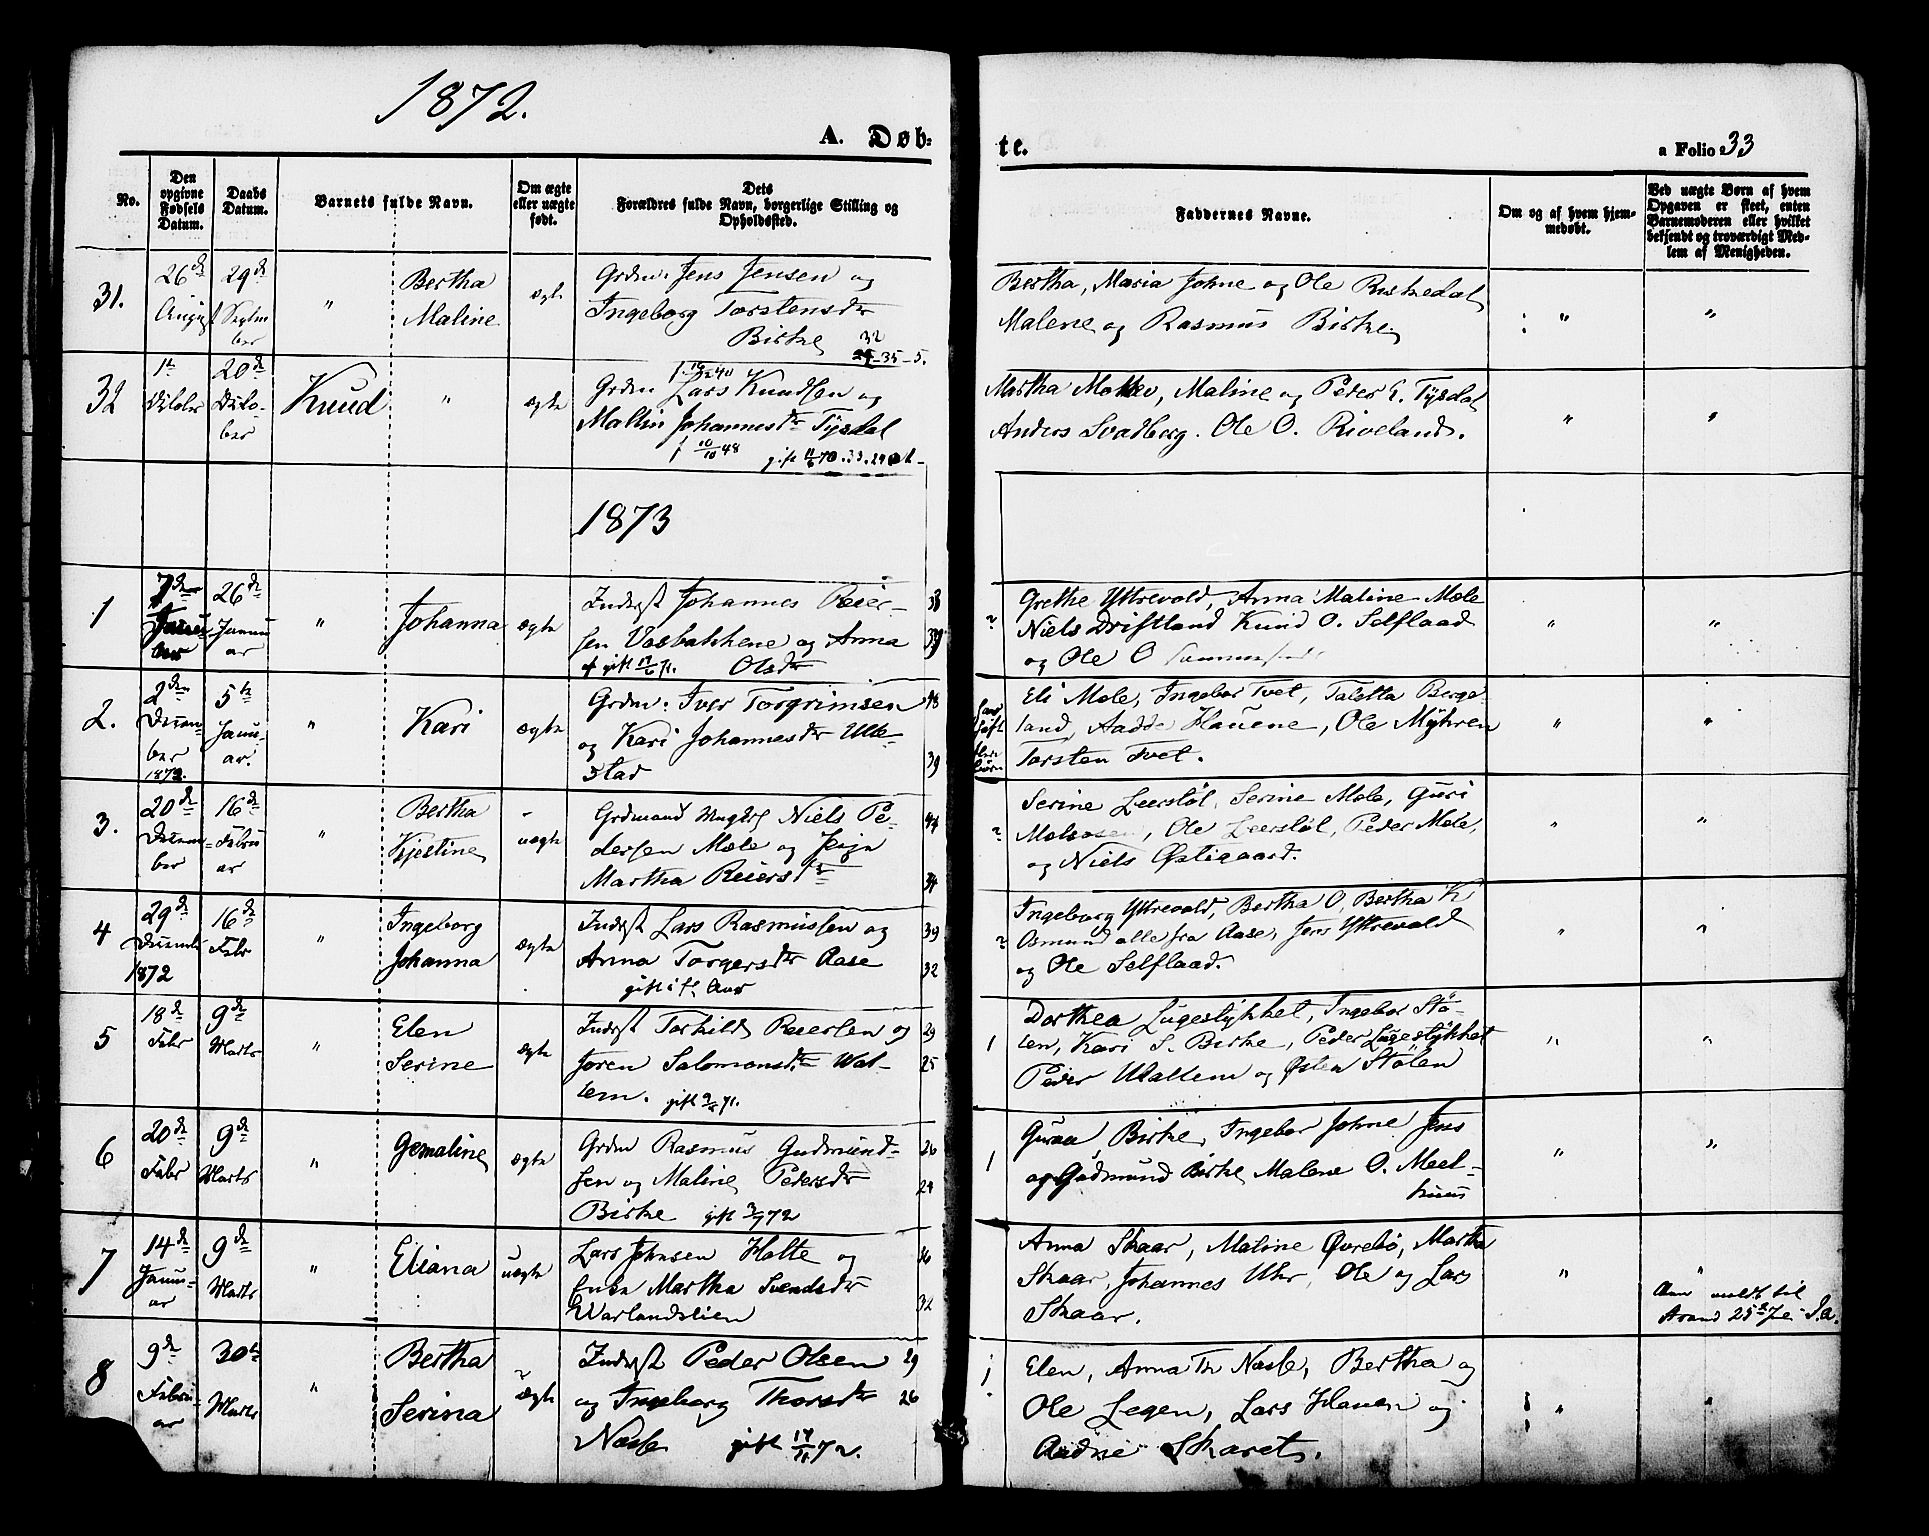 1872.
A. Døb=
te.
a Folio 33
No.
Den opgivne Fødsels Datum.
Daabs Datum.
Barnets fulde Navn.
Om ægte eller uægte født.
Dets
Forældres fulde Navn, borgerlige Stilling og Opholdssted.
Faddernes Navne.
Om og af hvem hjemmedøbt.
Ved uægte Børn af hvem Opgaven er skeet, enten Barnemoderen eller hvilket bekjendt og troværdigt Medlem af Menigheden.
31.
26de August
29de Septmber
"
Bertha
Maline
ægte
Grdm. Jens Jensen og
Ingeborg Torstensdtr
Birke
32
35-5.
Bertha, Maria Johne og Ole
Malene og Rasmus Birke
"
"
32
1te Octobr
20de October
Knud
"
ægte
Grdm Lars Knudsen og
Mallin Johannesdtr Tysdal
10/10 48 gift 11/6 70.
Martha, Maline og Peder E. Tysdal
Anders Svadberg. Ole O. Riveland.
"
"
1873
1
7de
26de Januar
"
Johanna
ægte
Inderst Johannes Reier-
sen Vasbakkene og Anna
gift Olsdtr
38
Grethe Yttrevold, Anna Maline Mæle
Niels Driftland Knud O. Selflaad
og Ole O
"
"
2.
2den December 1872.
5te Januar.
"
Kari
ægte
Grdm. Iver Torgrimsen
og Kari Johannesdtr Ulle-
stad
48
39
Eli Mæle, Ingebor Tvet, Taletta Berge-
land, Aadde Hauene, Ole Myhren
Torsten Tvet.
"
"
3.
20de December
16de Februar
"
Bertha
Kjestine
uægte
Grdmand Niels Pe-
dersen Mæle og Pige
Martha Reiersdtr
44
34
Serine Leersløl, Serine Mæle, Guri
Ole Leersløl, Peder Mæle,
og Niels Østigaard.
"
"
4
29de Decembr 1872
16de Febr
"
Ingeborg
Johanna
ægte
Inderst Lars Rasmussen og
Anna Torgersdtr Aase
39
32
Ingeborg Yttrevold, Bertha O, Bertha K
Osmund alle fra Aase, Jens Yttrevold
og Ole Selflaad.
"
"
5
18de Febr
9de Marts
"
Elen
Serine
ægte
Inderst Torkild Reiersen og
Joren Salomonsdtr Wat-
lem. gift
29
25
1
Dorthea Lügestykket, Ingebor Stö-
len, Kari S. Birke, Peder Lügestykket
Peder Watlem og Østen Stölen
"
"
6
20de Febr
9de Marts
"
Gemaline
ægte
Grdm Rasmus Gudmund-
sen og Maline Pedersdtr
Birke gift 3/7 72
26
24
1
Guraa Birke, Ingebor Johne Jens
og Gudmund Birke Malene O. Meel-
huus
"
"
7
14de Januar
9de Marts
"
Eliana
uægte
Lars Johnsen Holte og
Enke Martha Svendsdtr
Warlandslien
36
32
Anna Skaar, Maline Øvrebö, Martha
Skaar, Johannes Uhr, Ole og Lars
Skaar.
"
"
8
9de Februar
30te Marts
"
Bertha
Serina
ægte
Inderst Peder Olsen
og Ingeborg Thorsdtr
Næsse gift 72.
29
26
1
Elen, Anna Th Næsse, Bertha og
Ole Legen, Lars Hauen og
Aadne Skaret.
"
"